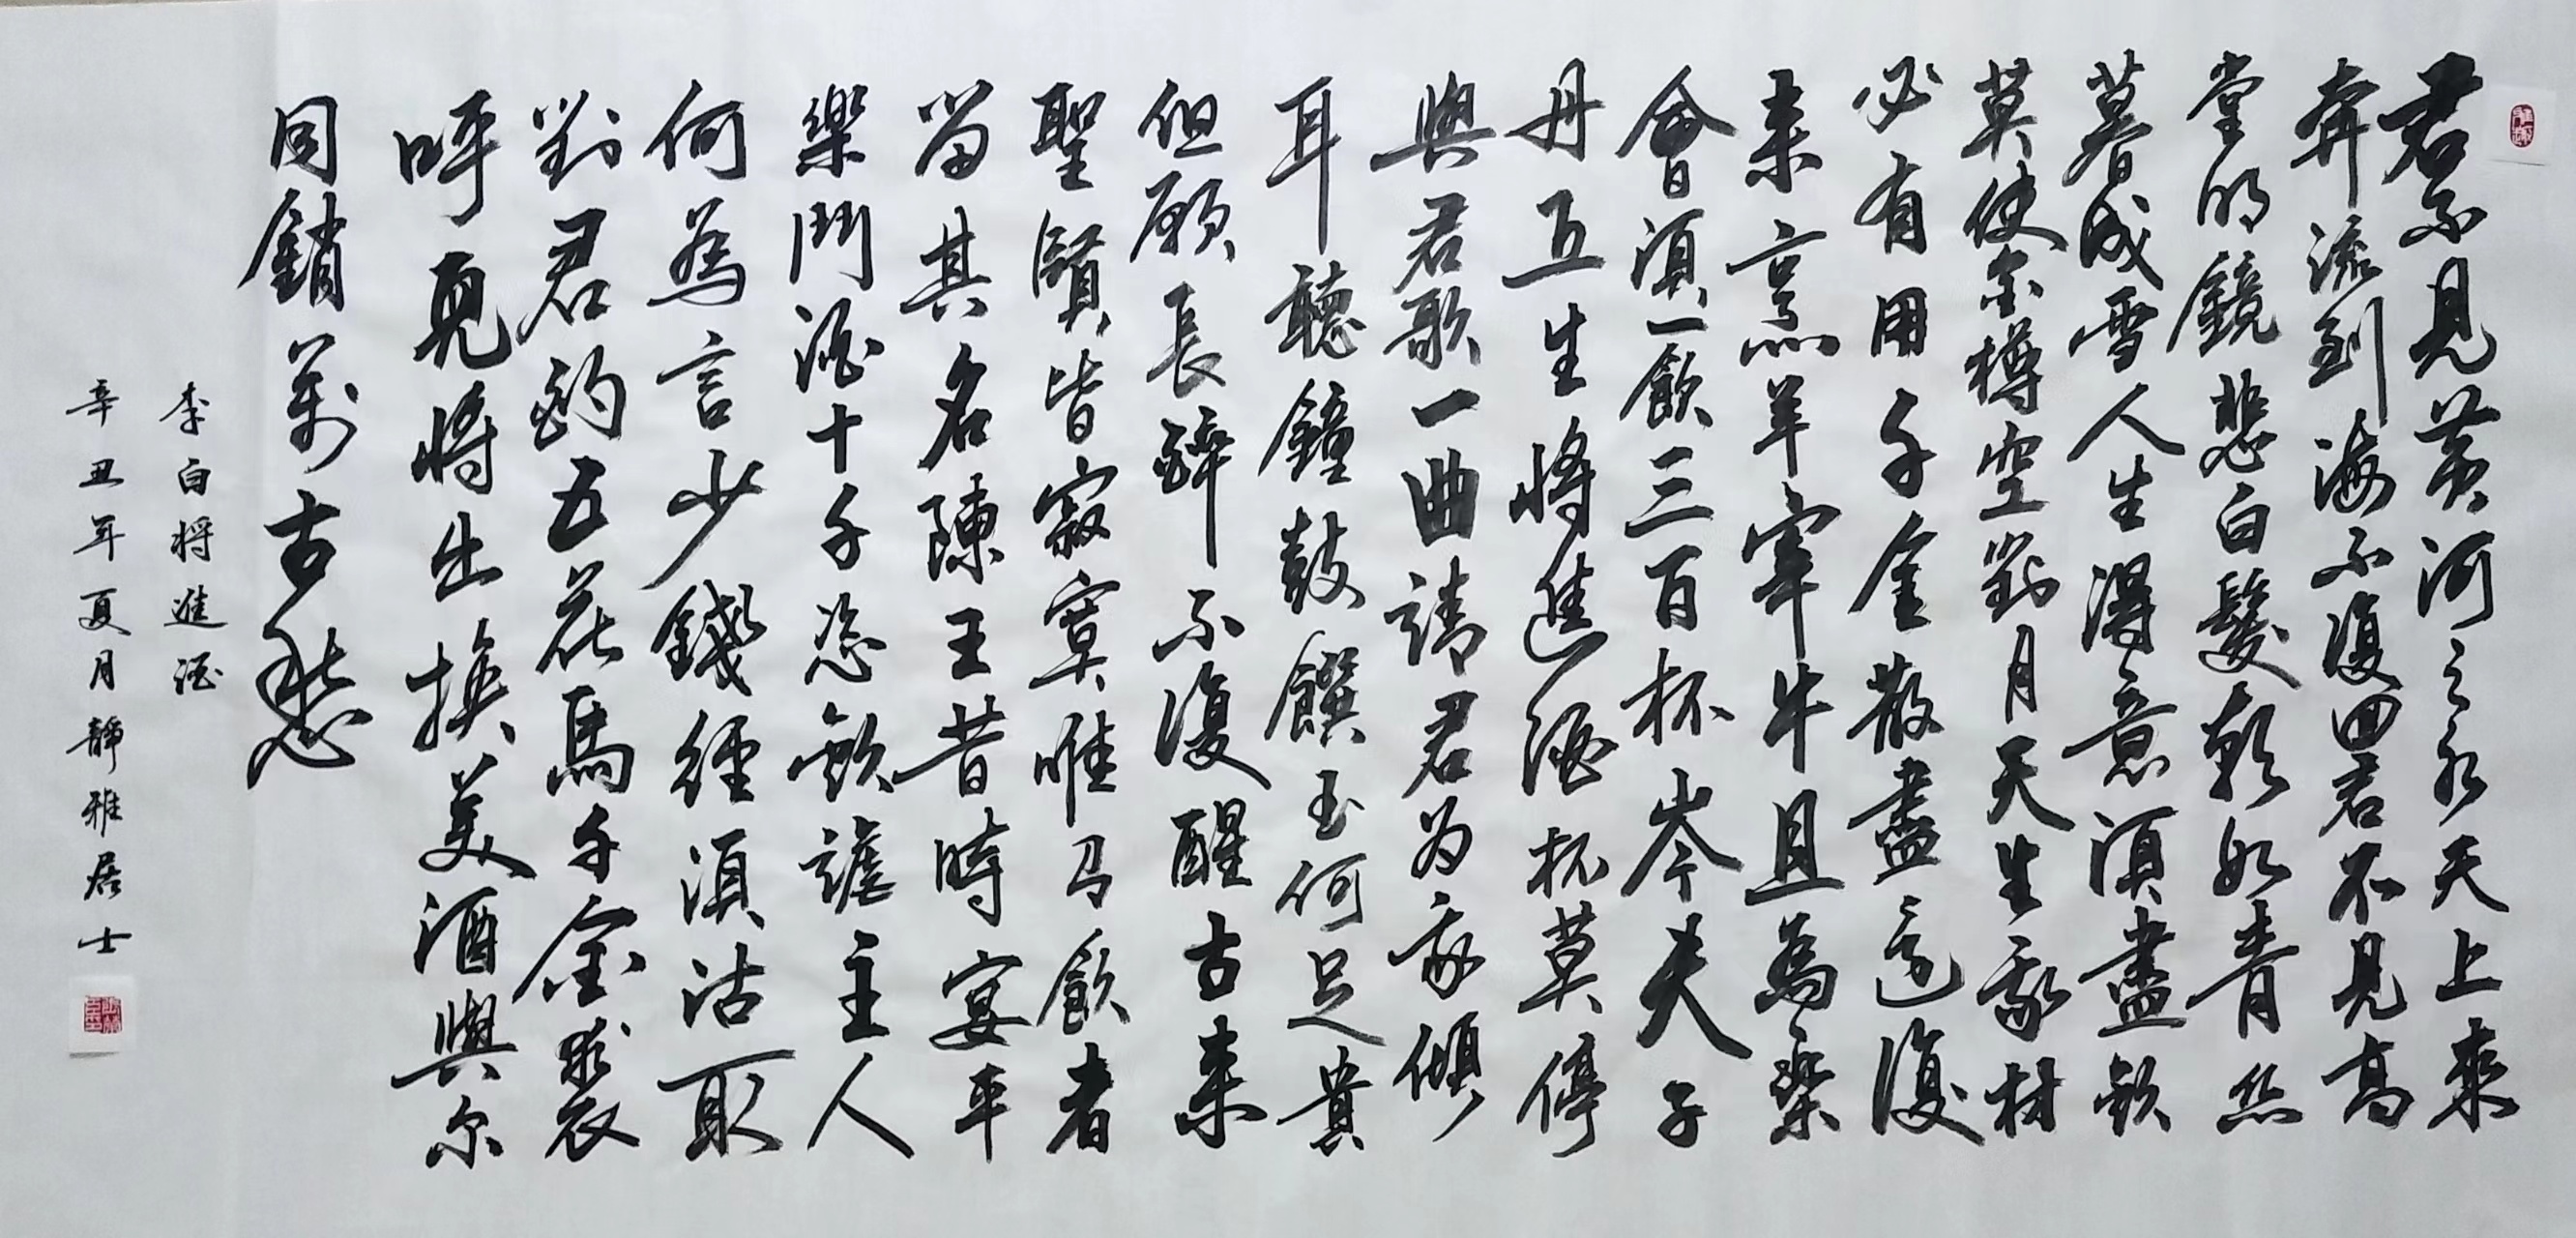 君不見黃河之水天上來
奔流到海不復回君不見高
堂明鏡悲白髮朝如青絲
暮成雪人生得意須盡歡
莫使金樽空對月天生我材
必有用千金散盡還復
来烹羊宰牛且為樂
會須一飲三百杯岑夫子
丹丘生將進酒杯莫停
與君歌一曲請君为我傾
耳聽鐘鼓饌玉何足貴
但願長醉不復醒古来
聖賢皆寂寞唯有飲者
留其名陳王昔時宴平
樂鬥酒十千恣歡謔主人
何為言少錢徑須沽取
對君酌五花馬千金裘
呼兒將出換美酒與尔
同銷萬古愁
李白将進酒
辛丑年夏月靜雅居士